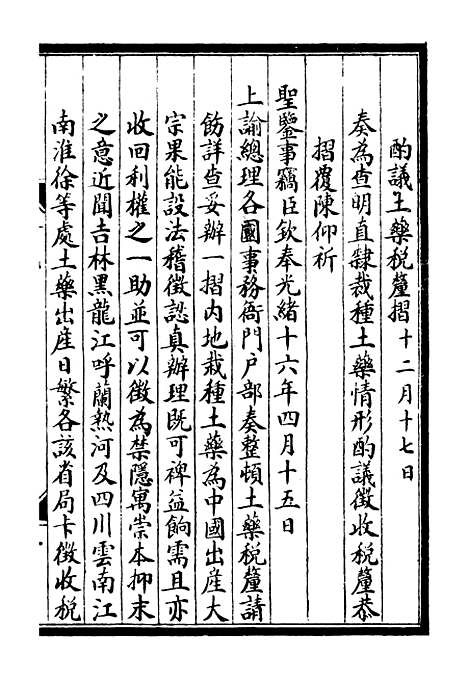 酌議土藥稅釐摺十二月十七日
奏為查明直隸栽種土藥情形酌議徵收稅釐恭
摺覆陳仰祈
聖鑒事竊臣欽奉光緒十六年四月十五日
上諭總理各國事務衙門户部奏整頓土藥稅釐請
飭詳查妥辦一摺內地栽種土藥為中國出産大
宗果能設法稽徵認真辦理既可裨益餉需且亦
收回利權之一助並可以徵為禁隱寓崇本抑末
之意近聞吉林黑龍江呼蘭熱河及四川雲南江
南淮徐等處土藥出産日繁各該省局卡徵收稅